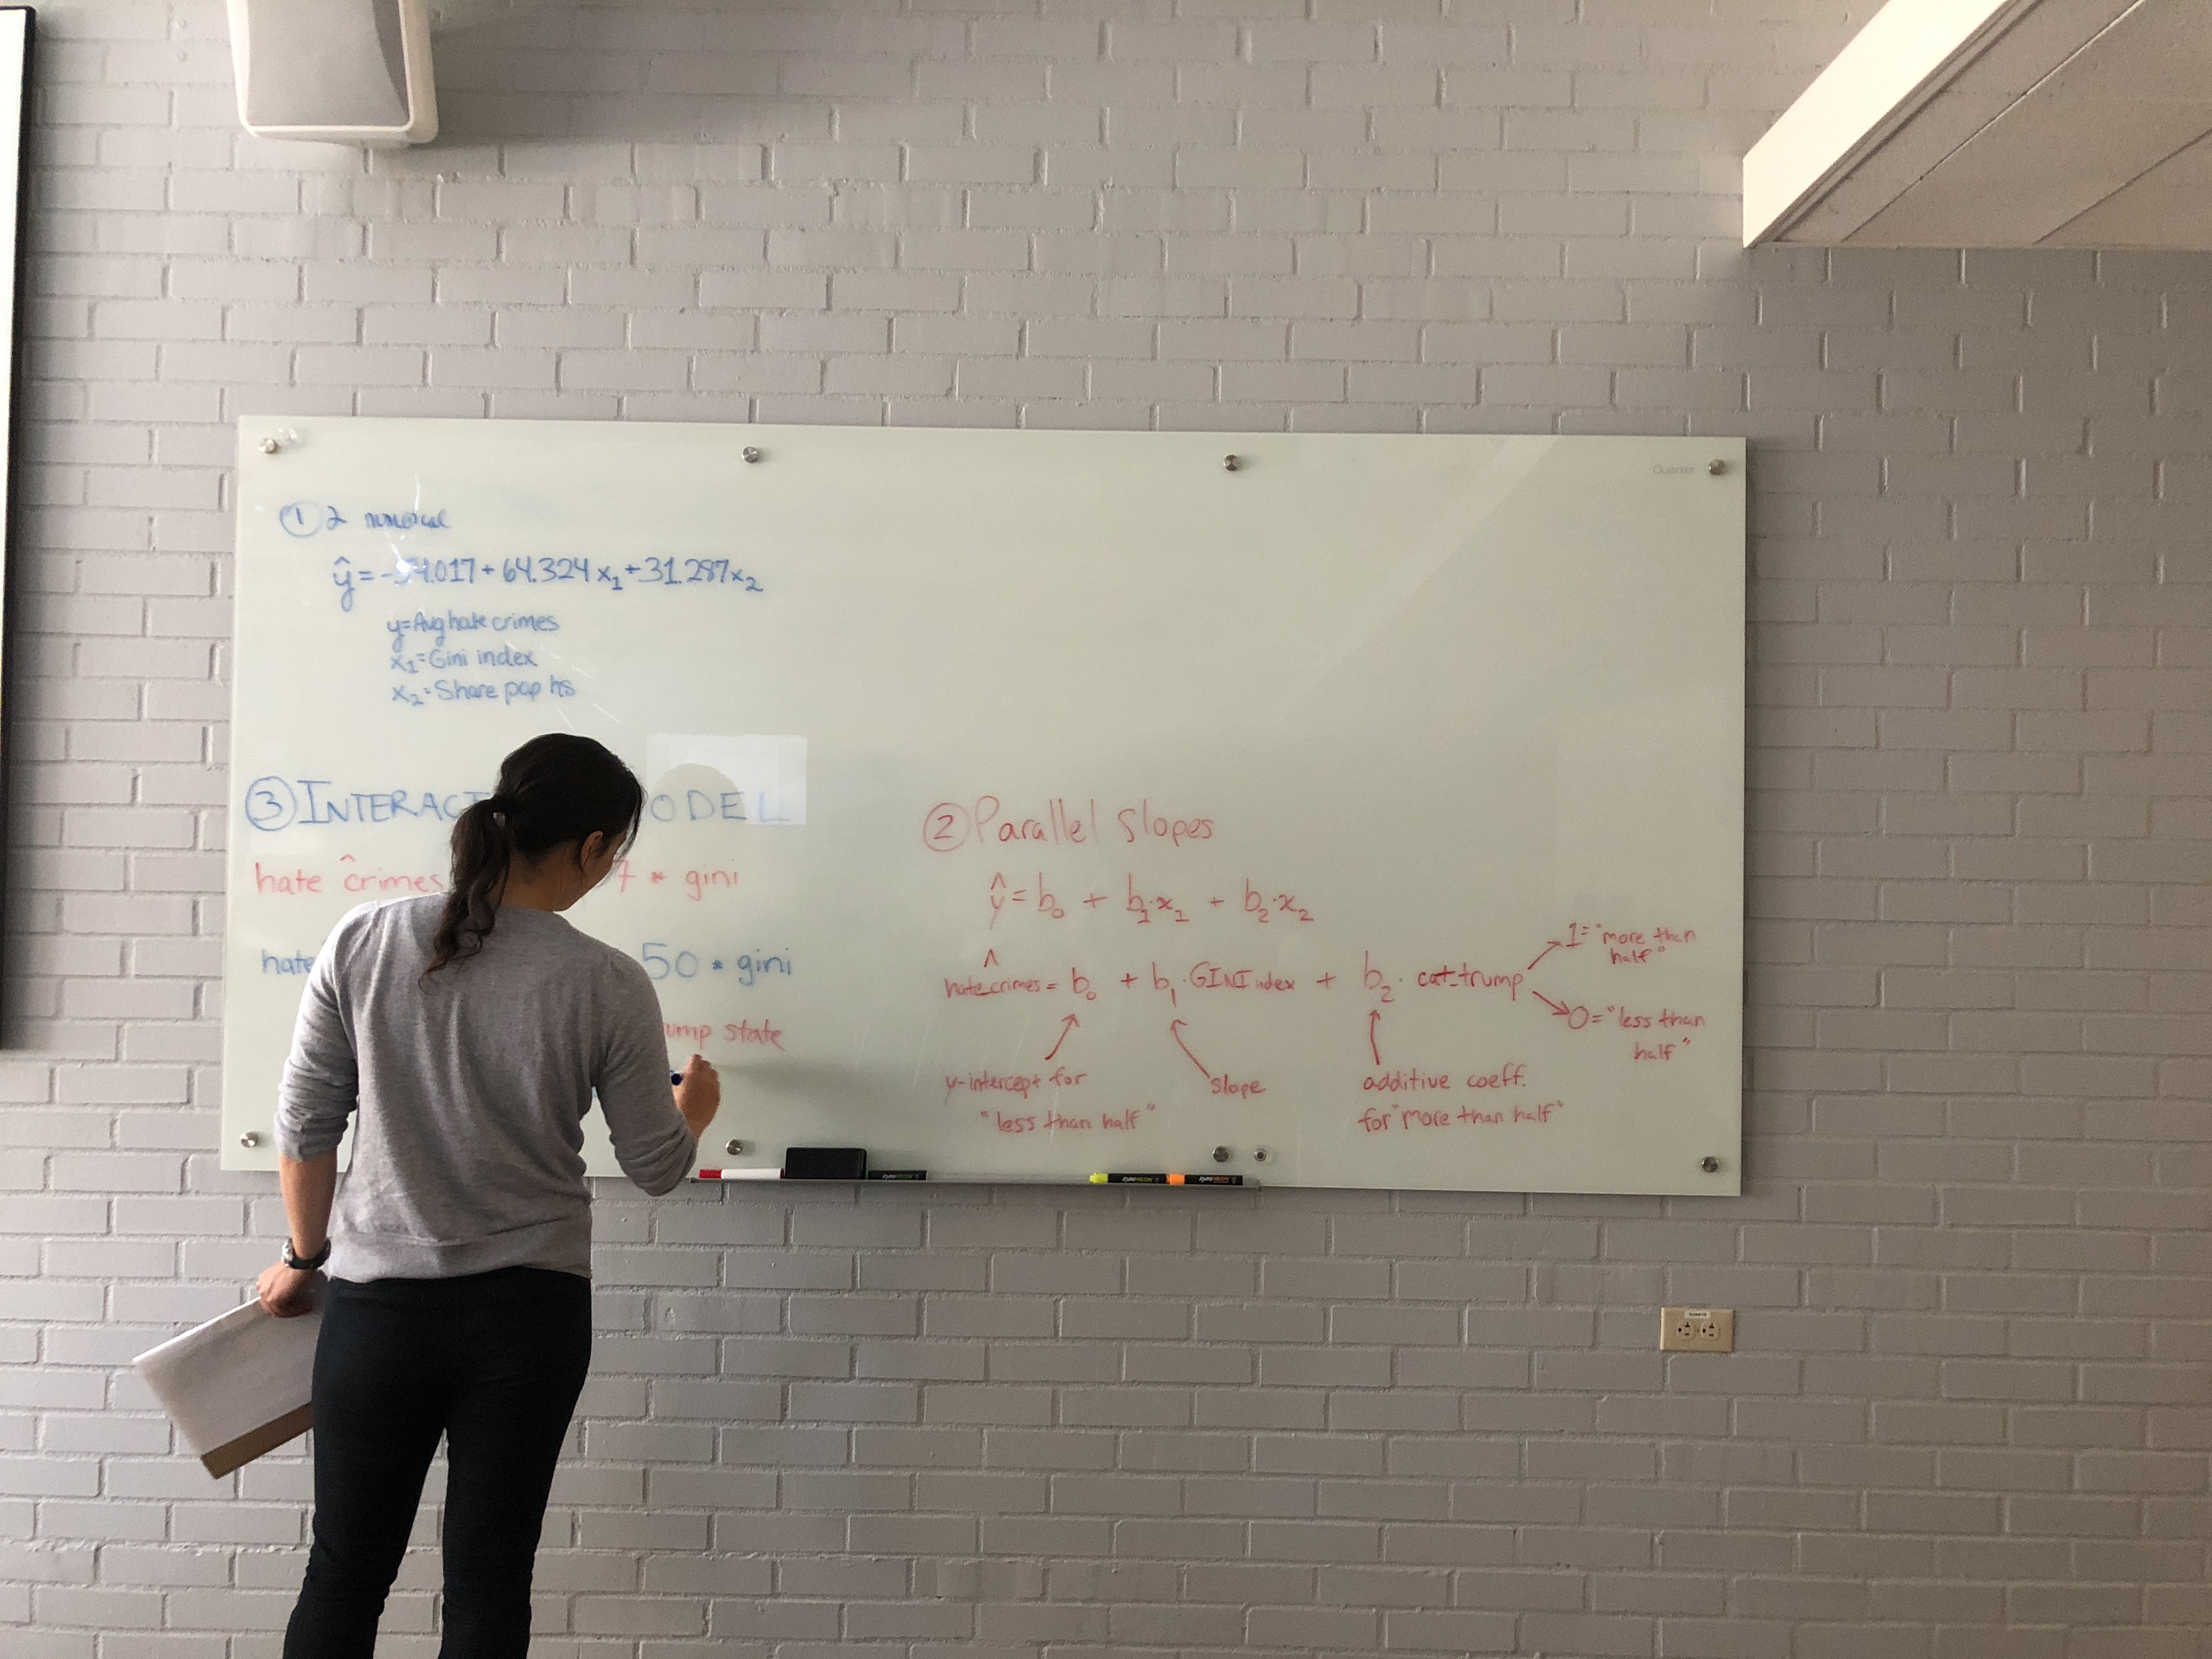 ① 2 numerical
ŷ = - 4.017 + 64.324 x₁ + 31.287 x₂
y = Avg hate crimes
x₁ = Gini index
x₂ = Share pop hs
③ INTERAC ODEL
hate crimes 7 * gini
hate 50 * gini
ump state
② Parallel Slopes
ŷ = b₀ + b₁·x₁ + b₂·x₂
hate_crimes^ = b₀ + b₁·GINI index + b₂· cat_trump
1 = "more than
half"
0 = "less than
half"
y-intercept for
"less than half"
slope
additive coeff.
for "more than half"
Quartet
EXPO NEON
EXPO NEON
EXPO NEON